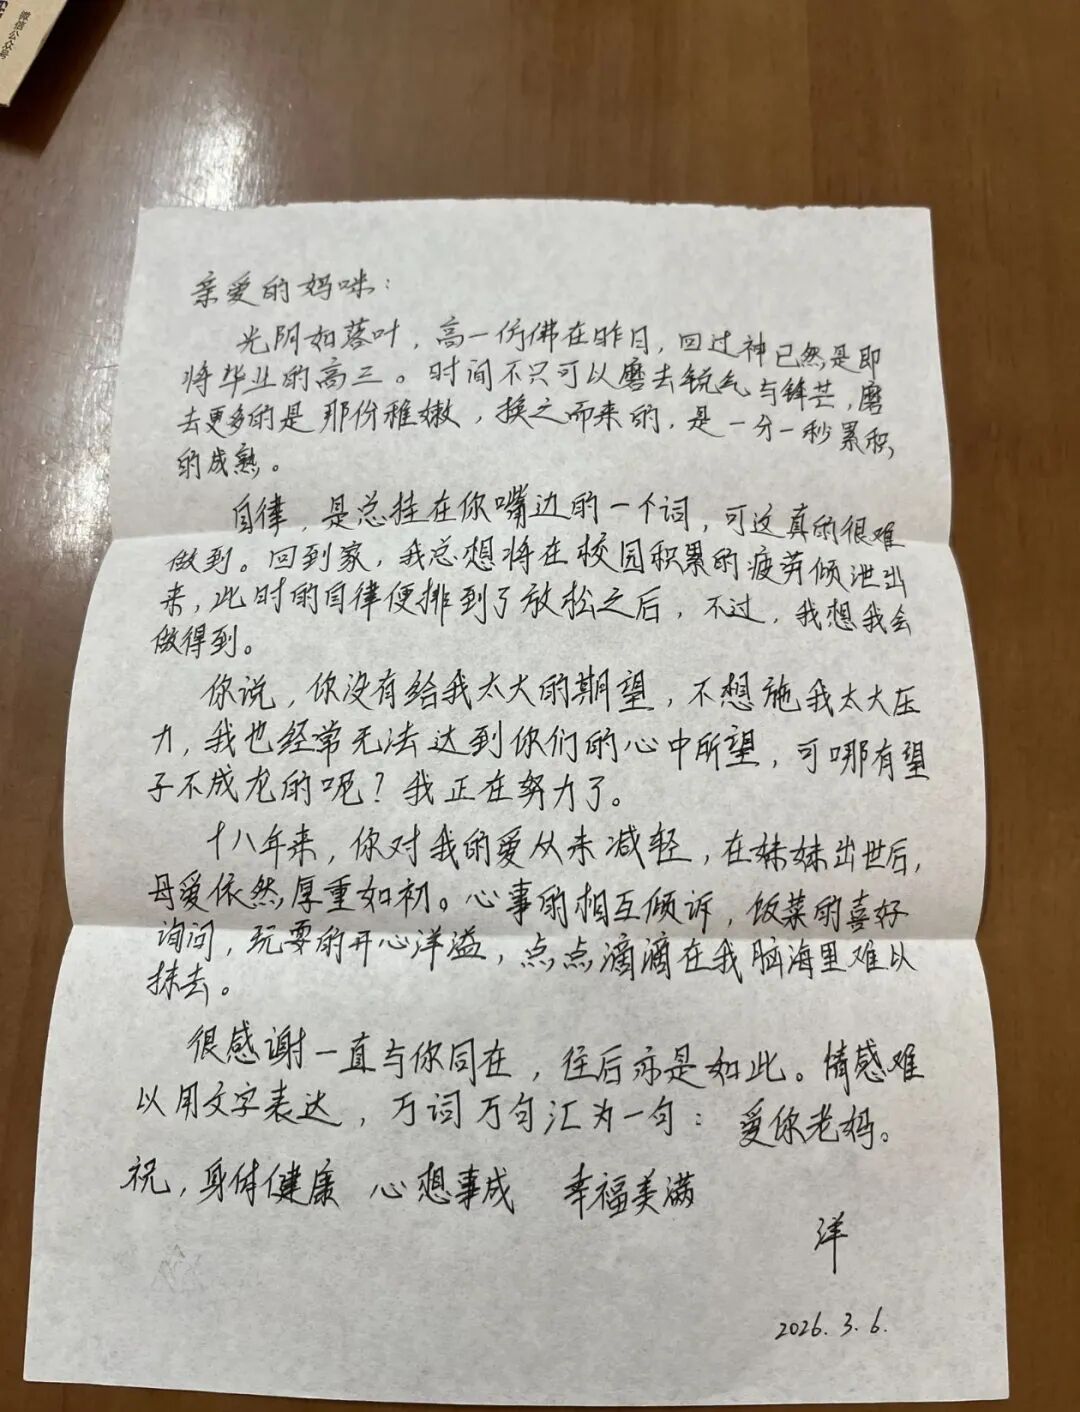 微信公众号
亲爱的妈咪：
光阴如落叶，高一仿佛在昨日，回过神已然是即
将毕业的高三。时间不只可以磨去锐气与锋芒，磨
去更多的是那份稚嫩，换之而来的，是一分一秒累积
的成熟。
自律，是总挂在你嘴边的一个词，可这真的很难
做到。回到家，我总想将在校园积累的疲劳倾泄出
来，此时的自律便排到了放松之后，不过，我想我会
做得到。
你说，你没有给我太大的期望，不想施我太大压
力，我也经常无法达到你们的心中所望，可哪有望
子不成龙的呢？我正在努力了。
十八年来，你对我的爱从未减轻，在妹妹出世后，
母爱依然厚重如初。心事的相互倾诉，饭菜的喜好
询问，玩耍的开心洋溢，点点滴滴在我脑海里难以
抹去。
很感谢一直与你同在，往后亦是如此。情感难
以用文字表达，万词万句汇为一句：爱你老妈。
祝，身体健康 心想事成 幸福美满
洋
2026.3.6.